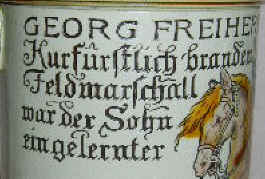 GEORG FREIHER
Kurfürstlich branden
Feldmarschall
war der Sohn
ein gelernter